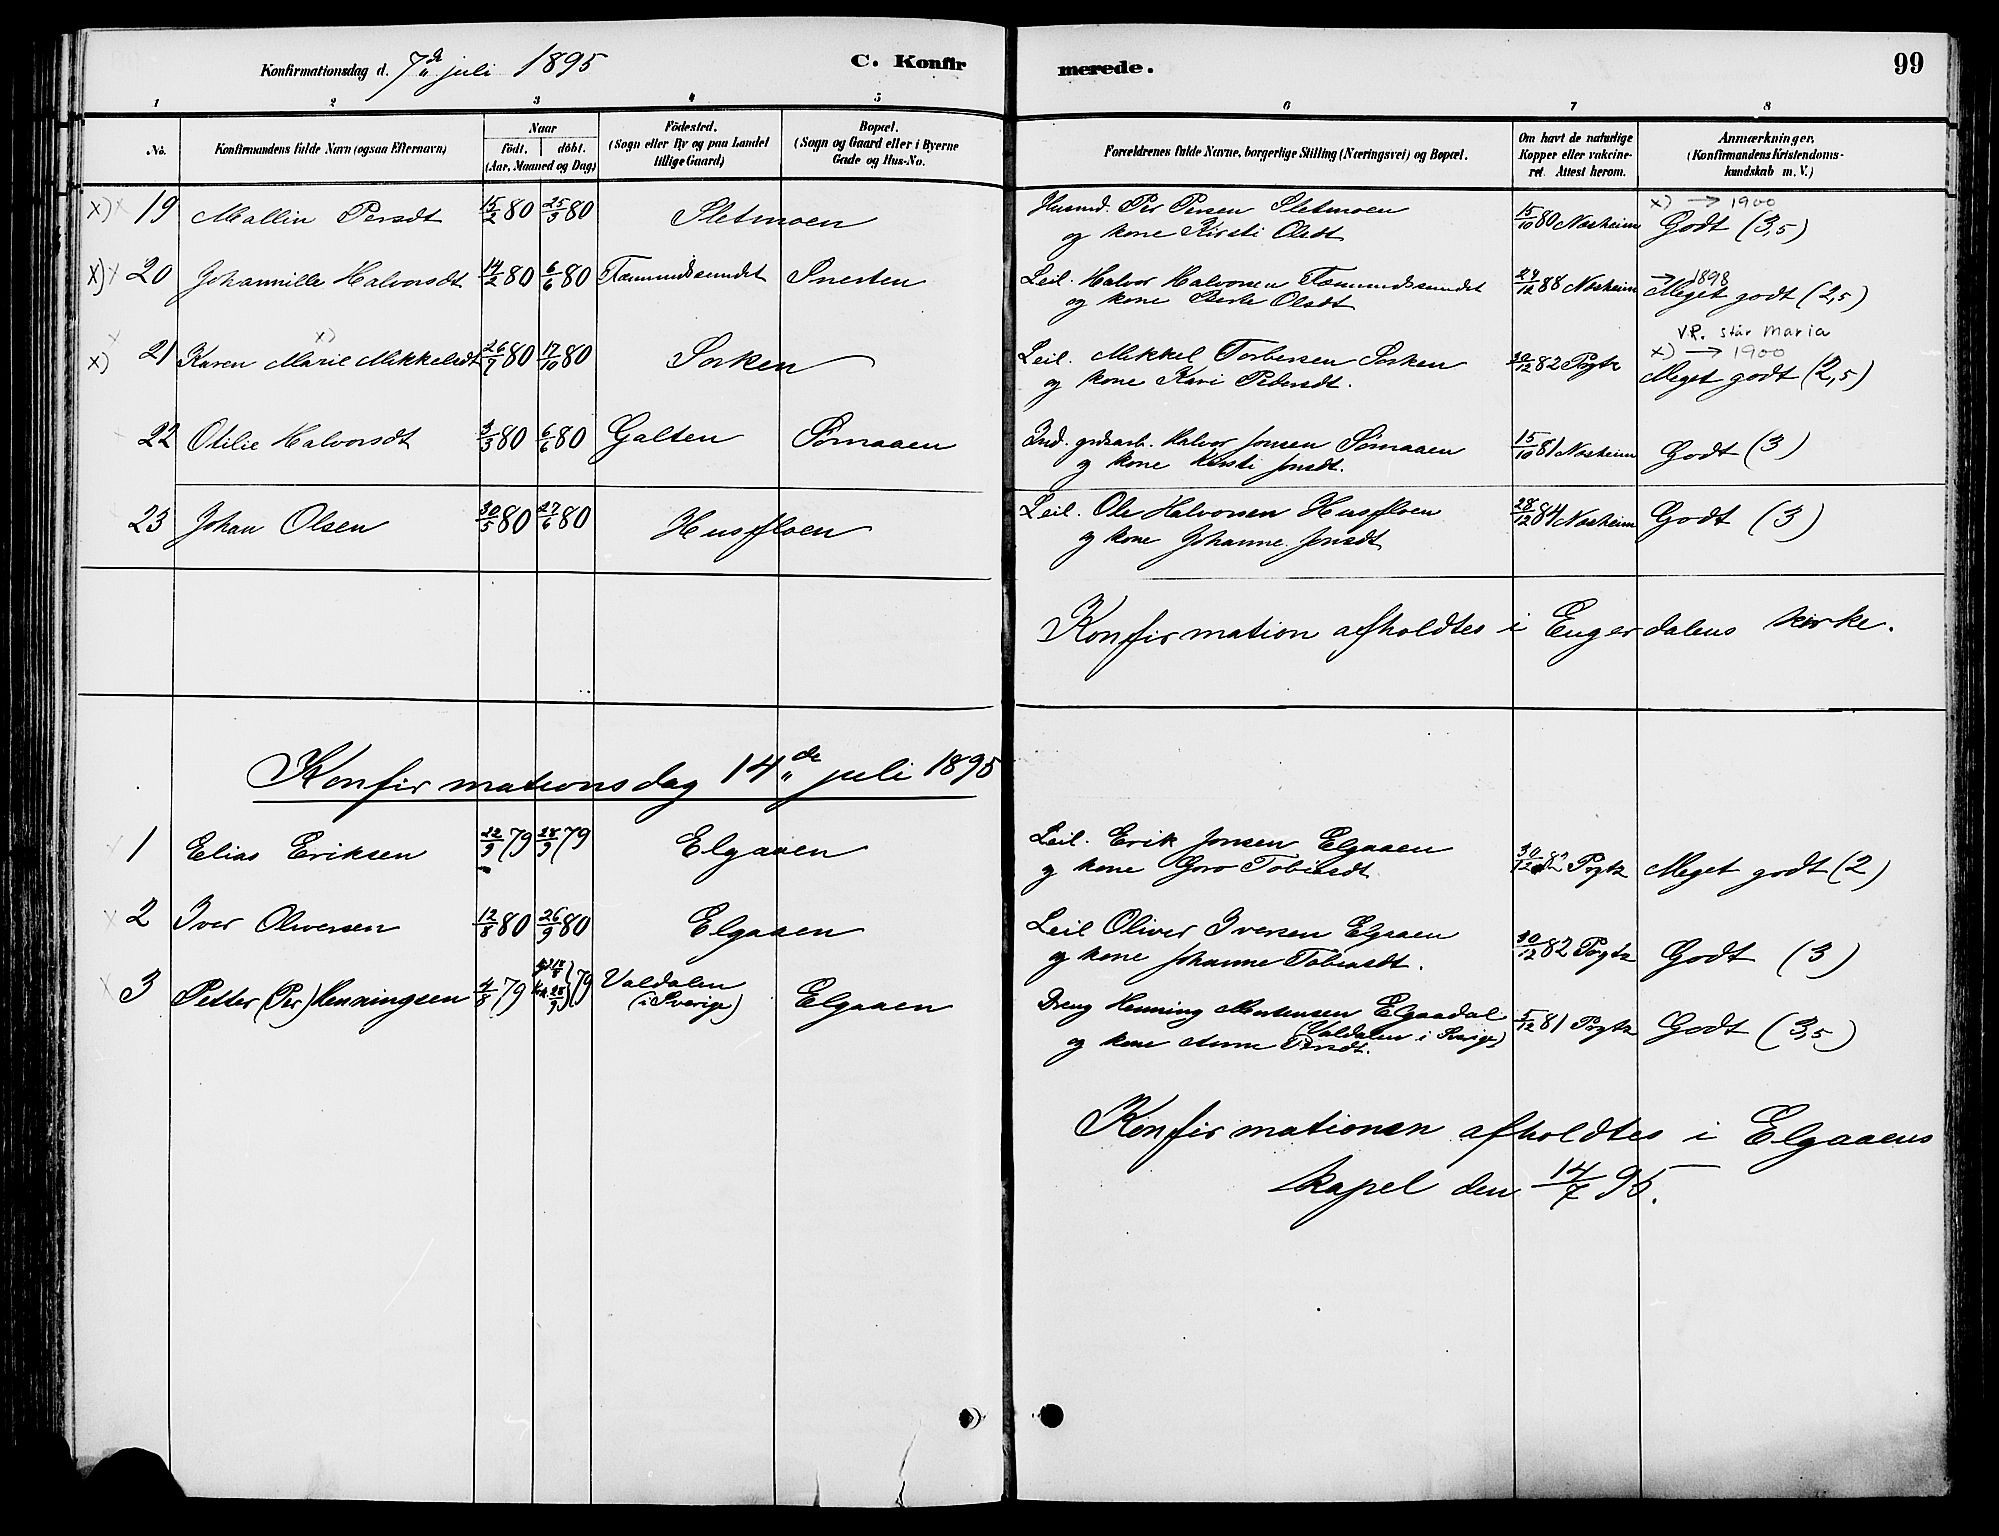 Konfirmationsdag d. 7de juli 1895
C. Konfirmerede.
99
1 2 3 4 5 6 7 8
No.
Konfirmandens fulde Navn (ogsaa Efternavn)
Naar
födt. döbt.
(Aar, Maaned og Dag)
Födested.
(Sogn eller By og paa Landet
tillige Gaard)
Bopæl.
(Sogn og Gaard eller i Byerne
Gade og Hus-No.
Forældrenes fulde Navne, borgerlige Stilling (Næringsvei) og Bopæl.
Om havt de naturlige
Kopper eller vakcine-
ret. Attest herom.
Anmærkninger,
(Konfirmandens Kristendoms-
kundskab m. V.)
x) 19 Mallin Persdt 15/2 80 25/3 80 Sletmoen Husmd. Per Persen Sletmoen 15/10 80 Nosheim x) → 1900
og kone Kirsti Olsdt Godt (3,5)
x) 20 Johannille Halvorsdt 14/2 80 6/6 80 Fæmundssundet Snerten Leil. Halvor Halvorsen Fæmundssundet 28/12 88 Nosheim → 1898
og kone Berte Olsdt Meget godt (2,5)
V.R. står Maria
x) 21 Karen Marie x) Mikkelsdt 26/7 80 17/10 80 Sorken Leil. Mikkel Torbersen Sorken 30/12 82 Pogtz x) → 1900
og kone Kari Pedersdt. Meget godt (2,5)
22 Otilie Halvorsdt 3/3 80 6/6 80 Galten Sömaaen Ind. grdsarb. Halvor Jonsen Sömaaen 15/10 81 Nosheim Godt (3)
og kone Kirsti Jonsdt.
23 Johan Olsen 30/5 80 27/6 80 Husfloen Leil. Ole Halvorsen Husfloen 28/12 84 Nosheim Godt (3)
og kone Johanne Jonsdt
Konfirmation afholdtes i Engerdalens kirke.
Konfirmationsdag 14de juli 1895
1 Elias Eriksen 12/9 79 28/9 79 Elgaaen Leil. Erik Jonsen Elgaaen 30/12 82 Pogtz Meget godt (2)
og kone Goro Tobiasdt
2 Iver Oliversen 12/8 80 26/9 80 Elgaaen Leil Oliver Iversen Elgaaen 30/12 82 Pogtz Godt (3)
og kone Johanne Tobiasdt.
3 Petter (Per) Henningsen 4/8 79 28/9 79 Valdalen (i Sverige) Elgaaen Dreng Henning Mortensen Elgaadal 5/12 81 Pogtz Godt (3,5)
(Valdalen i Sverige)
og kone Anne Persdt.
Konfirmationen afholdtes i Elgaaens
kapel den 14/7 95.